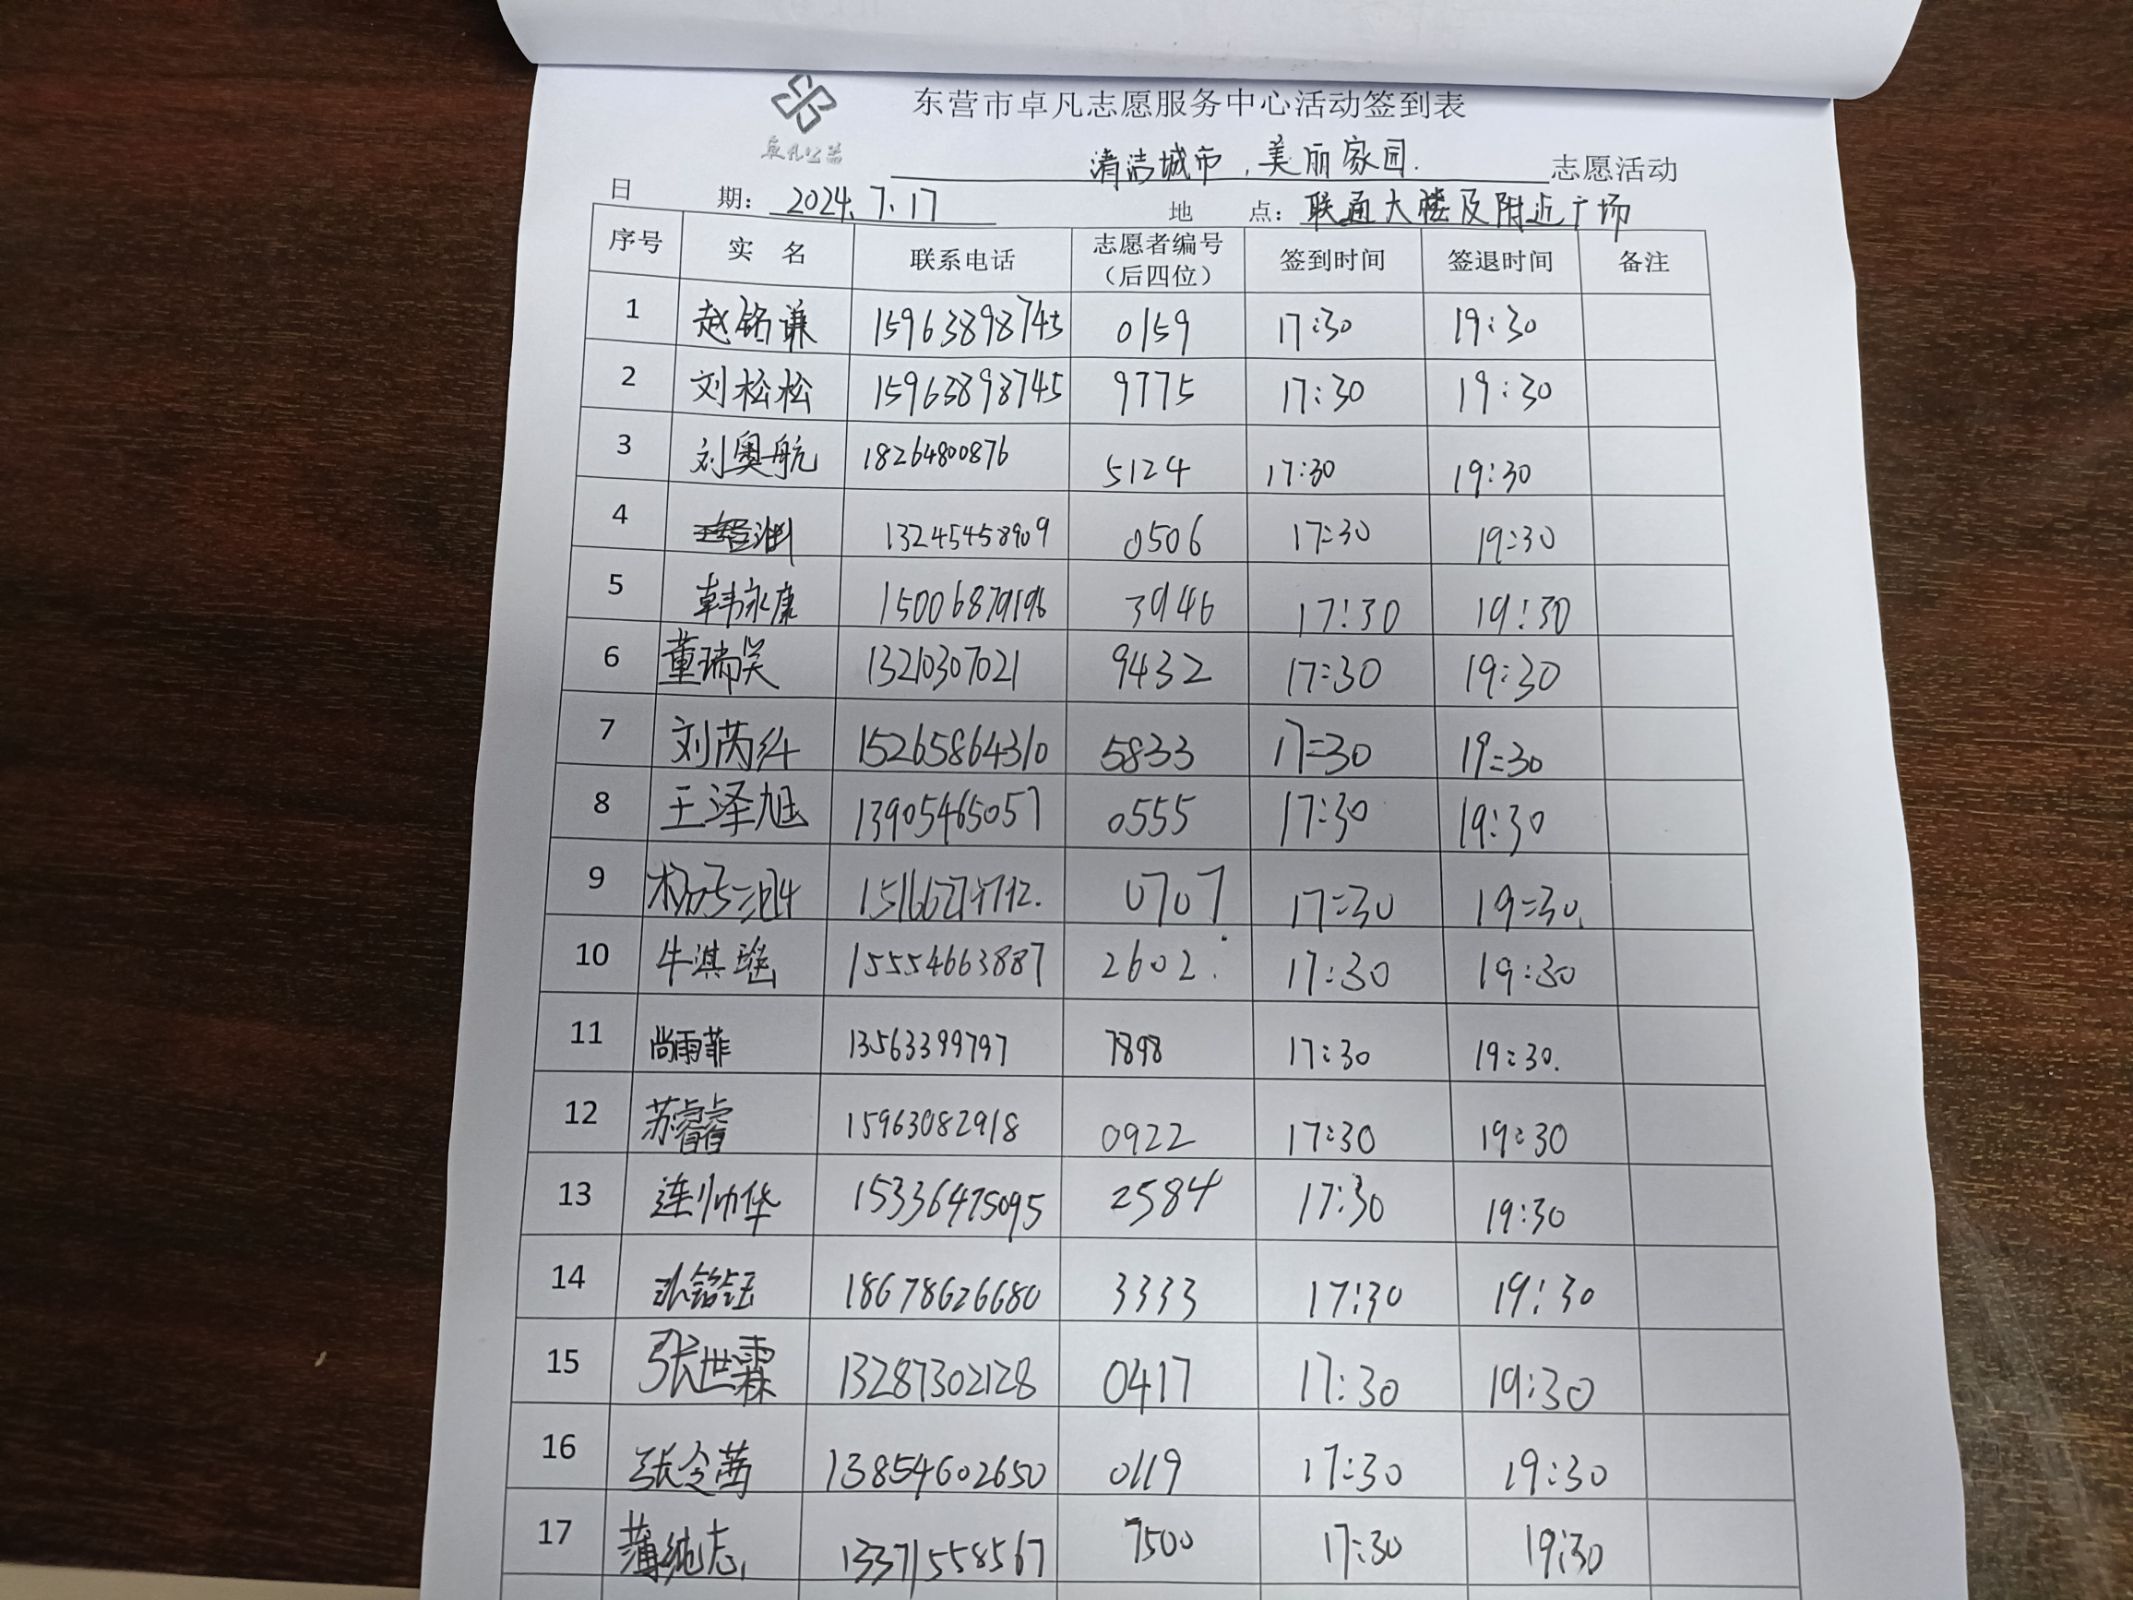 东营市卓凡志愿服务中心活动签到表
卓凡公益
清洁城市,美丽家园. 志愿活动
日 期: 2024.7.17 地 点: 联通大楼及附近广场
序号 实 名 联系电话 志愿者编号(后四位) 签到时间 签退时间 备注
1 赵铭谦 15963898745 0159 17:30 19:30
2 刘松松 15963898745 9775 17:30 19:30
3 刘奥航 18264800876 5124 17:30 19:30
4 13245458909 0506 17:30 19:30
5 韩永康 15006879196 3946 17:30 19:30
6 董瑞昊 13210307021 9432 17:30 19:30
7 刘芮 15265864310 5833 17:30 19:30
8 王泽旭 13905465057 0555 17:30 19:30
9 0707 17:30 19:30.
10 牛淇瑶 15554663887 2602. 17:30 19:30
11 尚雨菲 13563399797 7898 17:30 19:30.
12 苏睿睿 15963082918 0922 17:30 19:30
13 连帅华 15336475095 2584 17:30 19:30
14 铭钰 18678626680 3333 17:30 19:30
15 张世霖 13287302128 0417 17:30 19:30
16 张令茜 13854602650 0119 17:30 19:30
17 薄纯志 13371558567 7500 17:30 19:30